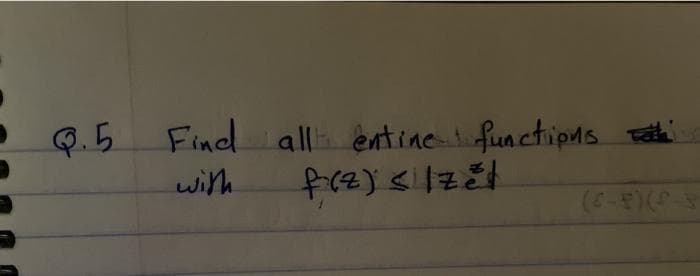 Q.5 Find all entine functions
with f(z) ≤ |ze^z|